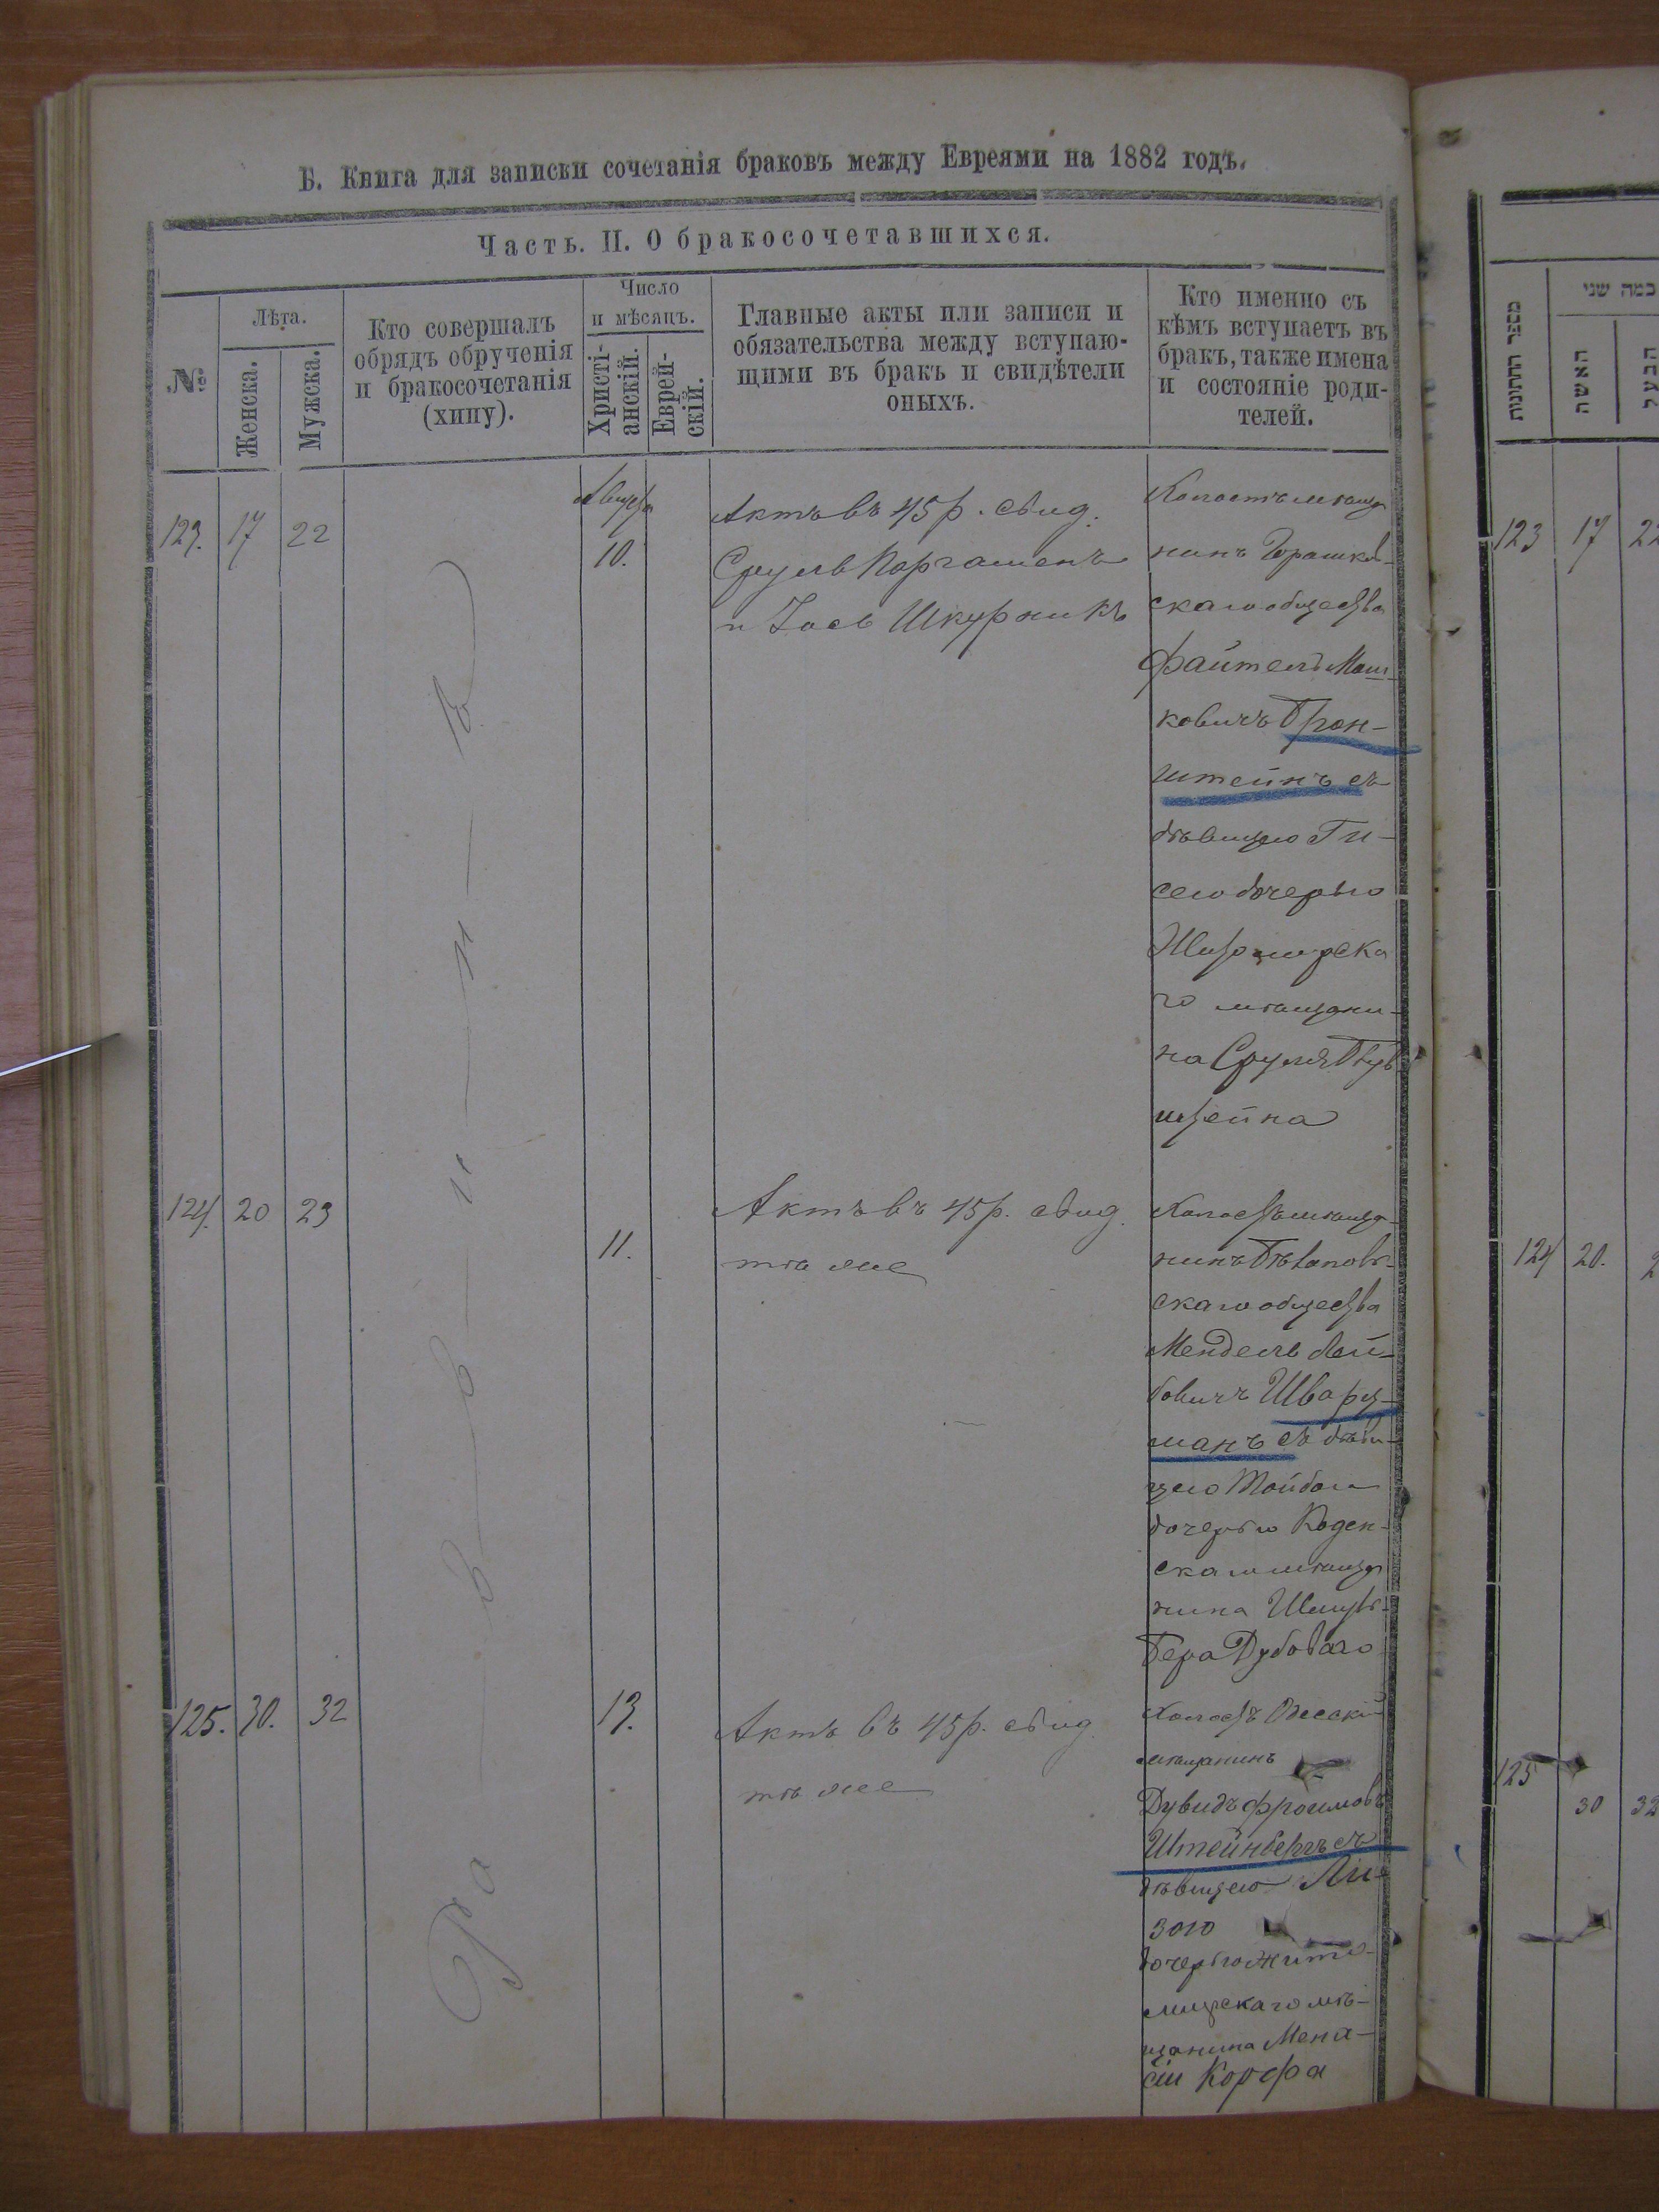 Б. Книга для записки сочетанія браковъ между Евреями на 1882 годъ.
Часть. II. О бракосочетавшихся.
№
Лѣта.
Женска.
Мужска.
Кто совершалъ
обрядъ обрученія
и бракосочетанія
(хипу).
Число
и мѣсяцъ.
Христі-
анскій.
Еврей-
скій.
Главные акты или записи и
обязательства между вступаю-
щими въ бракъ и свидѣтели
оныхъ.
Кто именно съ
кѣмъ вступаетъ въ
бракъ, также имена
и состояніе роди-
телей.
123. 17 22
Августа
10.
Актъ въ 45 р. свид.
Сруль Паргаменъ
и Іось Шкурникъ
Холостъ мѣща
нинъ
скаго общества
Файтель Мош-
ковичъ Брон-
штейнъ съ
дѣвицею Ги-
сею дочерью
Житомирска
го мѣщани-
на Сруля
штейна
124. 20 23
11.
Актъ въ 45 р. свид.
тѣ же
Холостъ мѣща-
нинъ
скаго общества
Мендель Лей-
бовичъ Шварц-
манъ съ дѣви-
цею Тойбою
дочерью
скаго мѣща
нина
Бера Дубоваго
125. 30. 32
13.
Актъ въ 45 р. свид
тѣ же
Холостъ Одесскій
мѣщанинъ
Дувидъ Фроимовъ
Штейнбергъ съ
дѣвицею Ли-
зою
дочерью Жито-
мирскаго мѣ-
щанина Мена-
сіи Корфа
Раввинъ
מספר החתונות
כמה שני
האשה
הבעל
123 17 22
124 20.
125
30 32